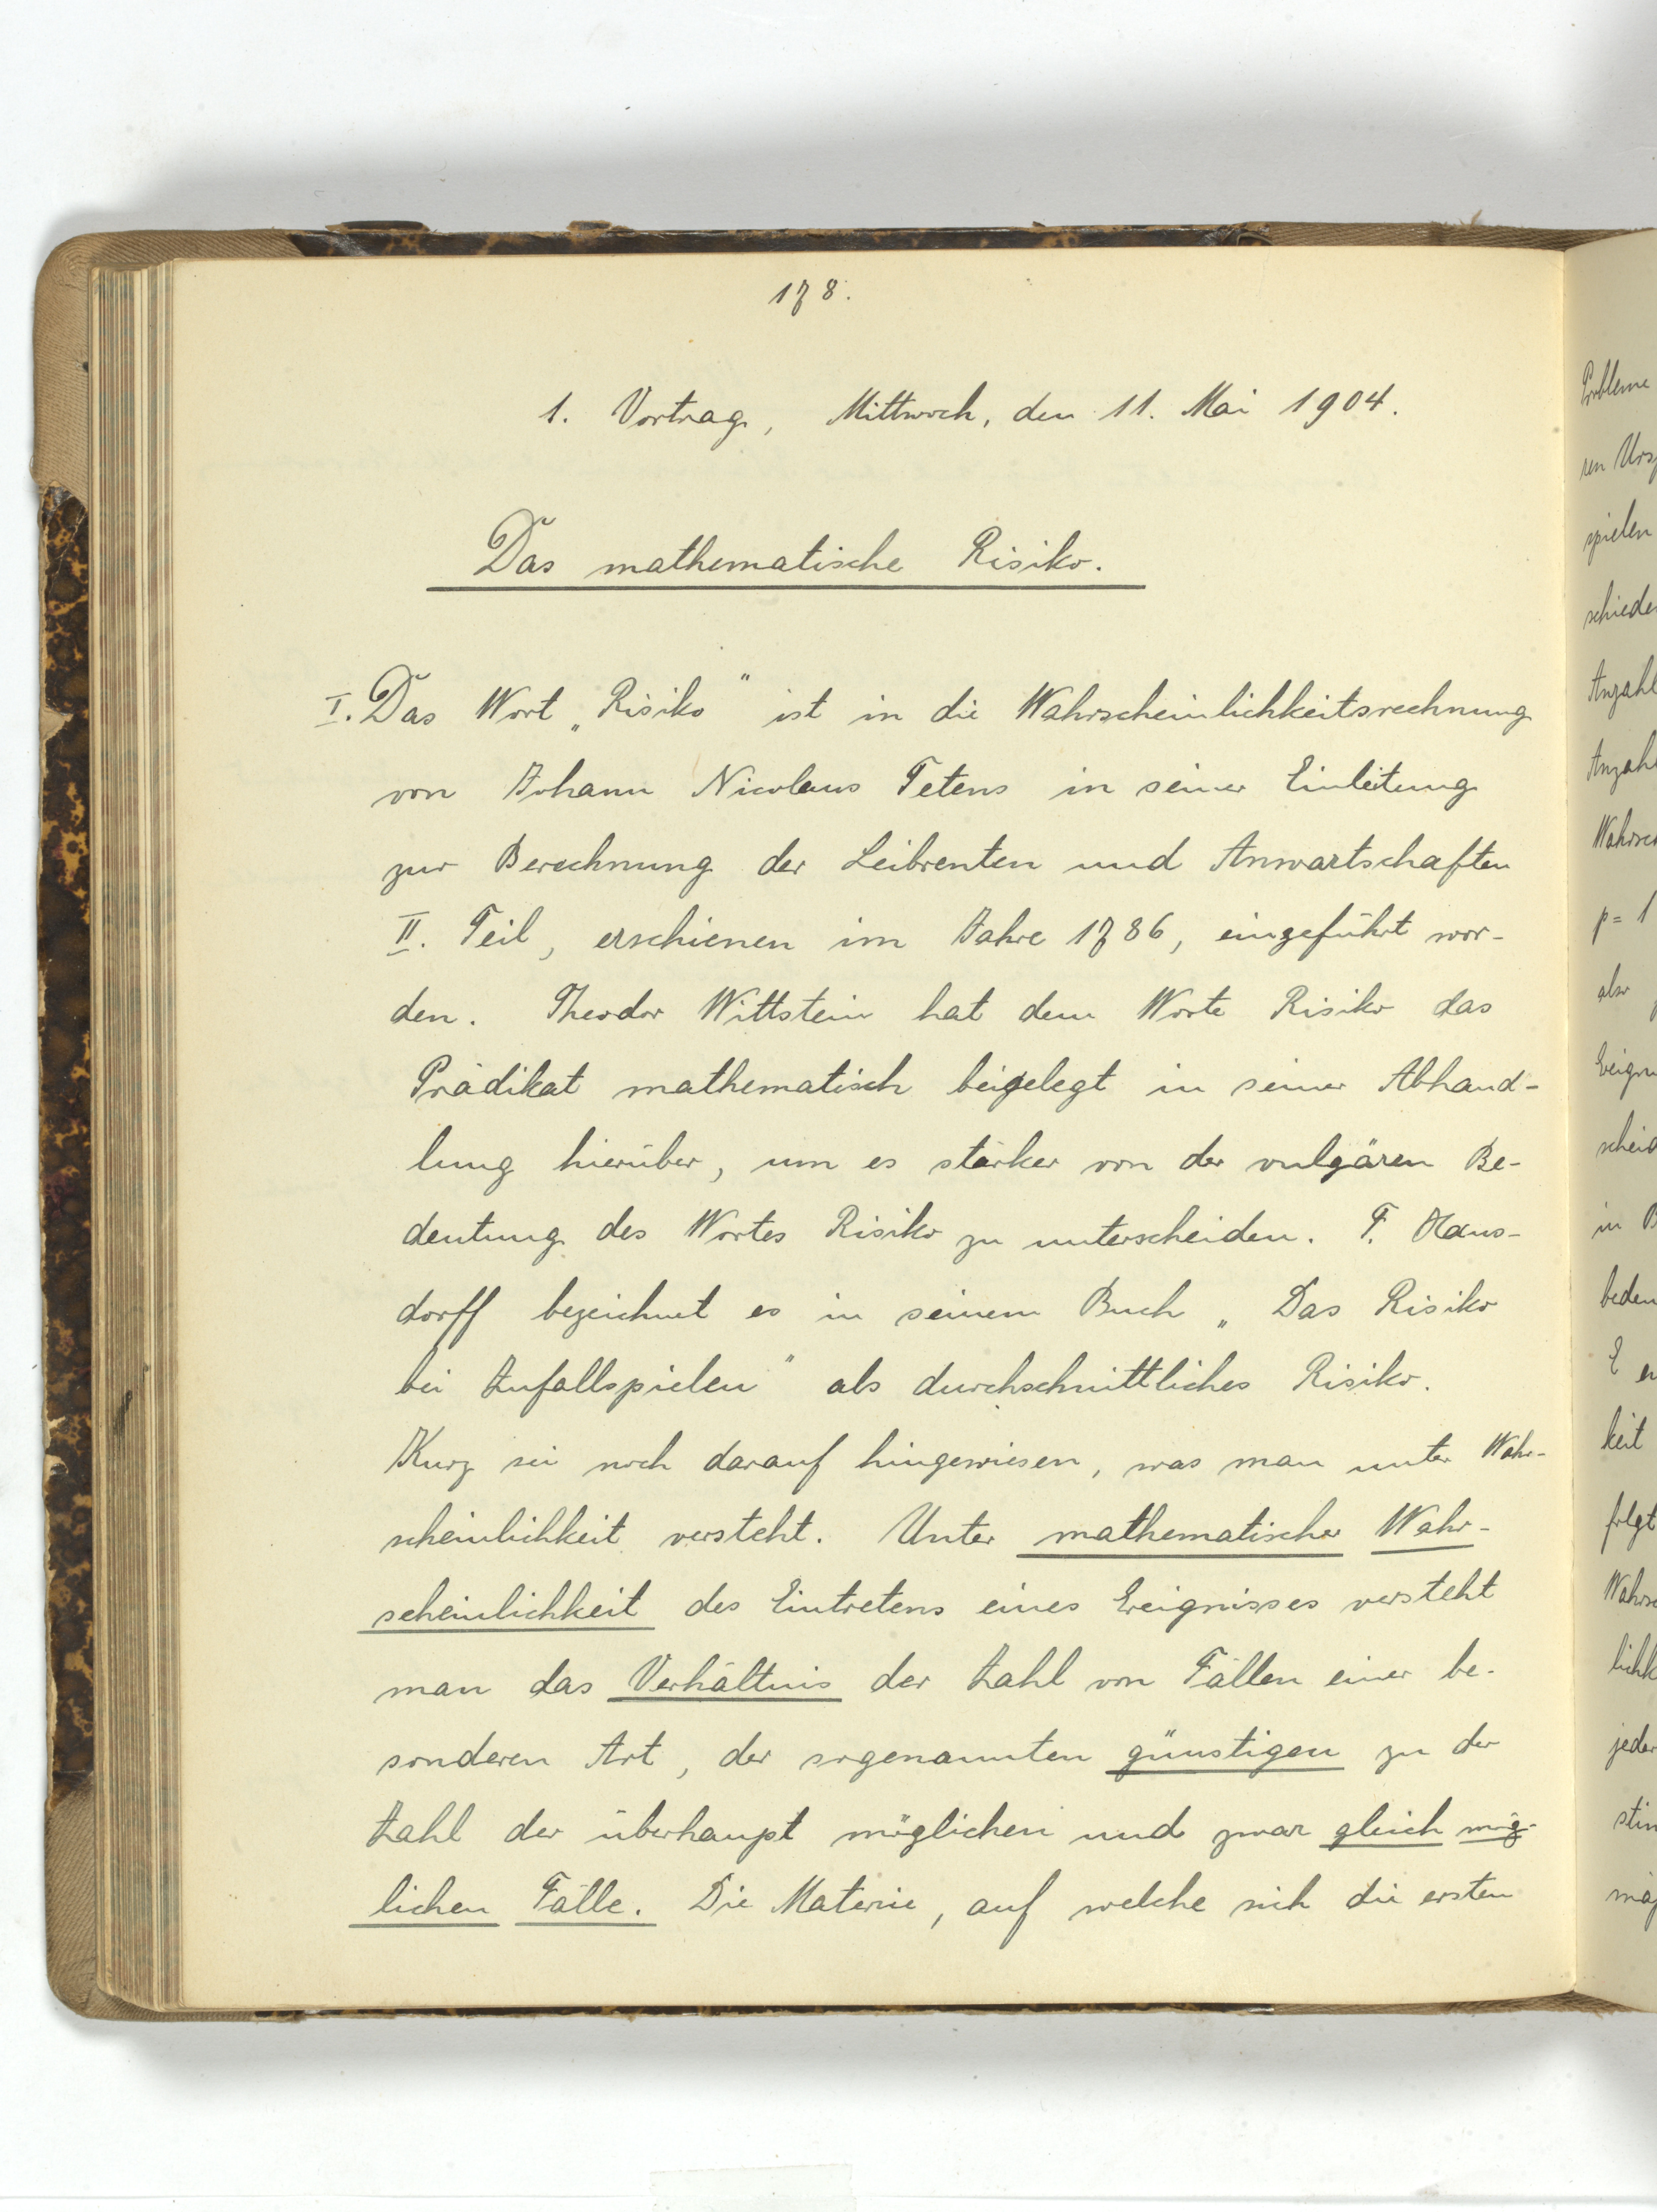 178.
1. Vortrag, Mittwoch, den 11. Mai 1904.
Das mathematische Risiko.
I. Das Wort „Risiko" ist in die Wahrscheinlichkeitsrechnung
von Johann Nicolaus Tetens in seiner Einleitung
zur Berechnung der Leibrenten und Anwartschaften
II. Teil, erschienen im Jahre 1786, eingeführt wor-
den. Theodor Wittstein hat dem Worte Risiko das
Prädikat mathematisch beigelegt in seiner Abhand-
lung hierüber, um es stärker von der vulgären Be-
deutung des Wortes Risiko zu unterscheiden. F. Haus-
dorff bezeichnet es in seinem Buch „Das Risiko
bei Zufallspielen" als durchschnittliches Risiko.
Kurz sei noch darauf hingewiesen, was man unter Wahr-
scheinlichkeit versteht. Unter mathematischer Wahr-
scheinlichkeit des Eintretens eines Ereignisses versteht
man das Verhältnis der Zahl von Fällen einer be-
sonderen Art, der sogenannten günstigen zu der
Zahl der überhaupt möglichen und zwar gleich mög-
lichen Fälle. Die Materie, auf welche sich die ersten
Probleme
ren
spielen
schieden
Anzahl
Anzahl
p = 1
also
in
E
keit
folgt